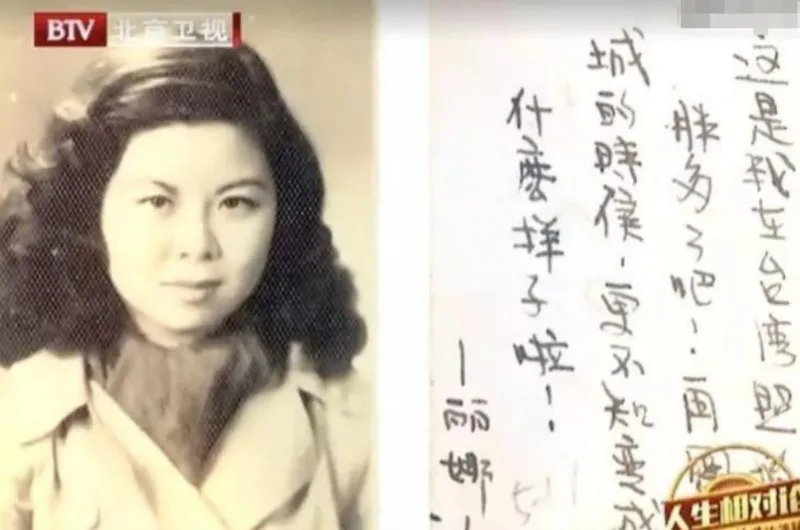 BTV 北京卫视
这是我在台湾照
胖多了吧！再
城的时候，更不知变成
什麽样子啦！
—丽娜
人生相对论